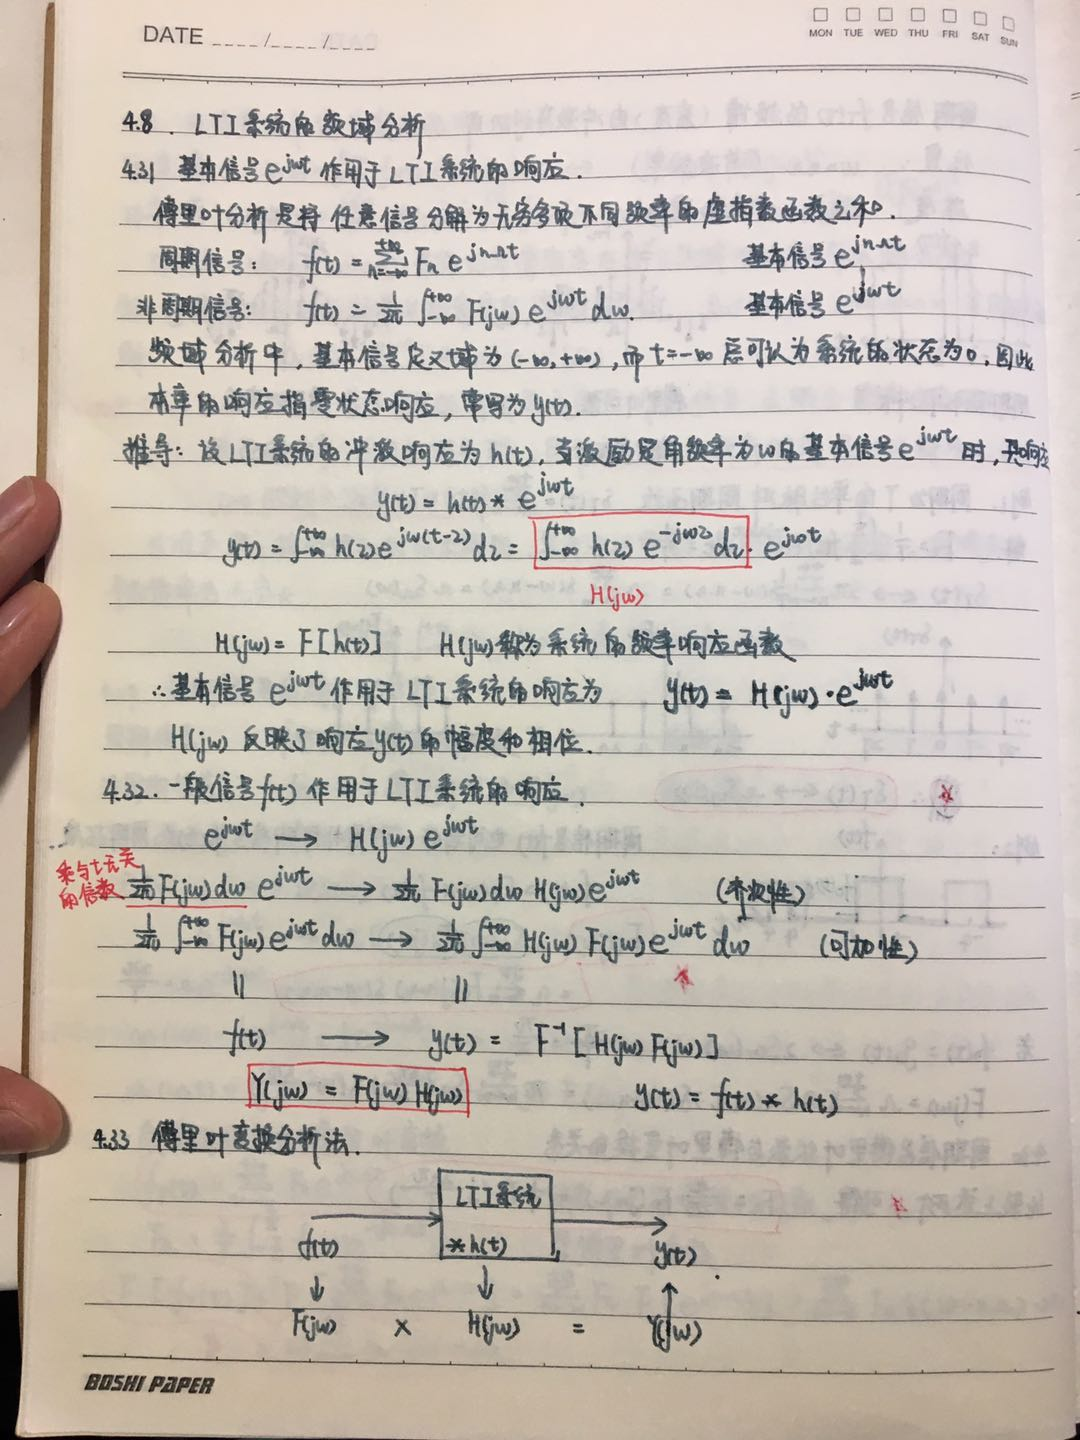 DATE ____/____/____
MON TUE WED THU FRI SAT SUN
4.8. LTI系统的频域分析
4.31 基本信号e^{jωt}作用于LTI系统的响应.
傅里叶分析是将任意信号分解为无穷多项不同频率的虚指数函数之和.
周期信号: f(t)=∑_{n=-∞}^{+∞} F_n e^{jnΩt} 基本信号e^{jnΩt}
非周期信号: f(t)=1/2π ∫_{-∞}^{+∞} F(jω) e^{jωt} dω. 基本信号e^{jωt}
频域分析中, 基本信号定义域为(-∞,+∞), 而t=-∞总可认为系统的状态为0, 因此
本章的响应指零状态响应, 常写为y(t).
推导: 设LTI系统的冲激响应为h(t), 当激励是角频率为ω的基本信号e^{jωt}时, 其响应
y(t)=h(t)*e^{jωt}
y(t)=∫_{-∞}^{+∞} h(τ)e^{jω(t-τ)}dτ = ∫_{-∞}^{+∞} h(τ) e^{-jωτ} dτ · e^{jωt}
H(jω)
H(jω)=F[h(t)] H(jω)称为系统的频率响应函数
∴基本信号e^{jωt}作用于LTI系统的响应为 y(t)=H(jω)·e^{jωt}
H(jω)反映了响应y(t)的幅度和相位.
4.32. 一般信号f(t)作用于LTI系统的响应.
e^{jωt} → H(jω)e^{jωt}
乘与t无关
的信数 1/2π F(jω)dω e^{jωt} → 1/2π F(jω)dω H(jω)e^{jωt} (齐次性)
1/2π ∫_{-∞}^{+∞} F(jω)e^{jωt}dω → 1/2π ∫_{-∞}^{+∞} H(jω)F(jω)e^{jωt}dω (可加性)
|| ||
f(t) → y(t) = F^{-1}[H(jω)F(jω)]
Y(jω) = F(jω)H(jω) y(t)=f(t)*h(t)
4.33 傅里叶变换分析法.
LTI系统
f(t) *h(t) y(t)
↓ ↓ ↑
F(jω) × H(jω) = Y(jω)
BOSHI PAPER